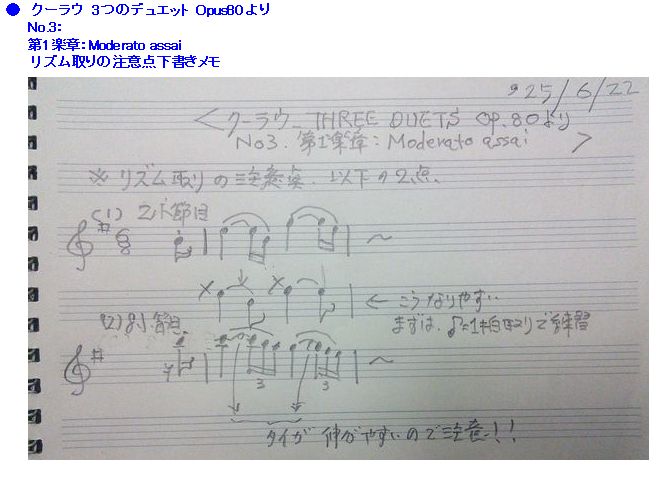 ● クーラウ 3つのデュエット Opus80より
No.3:
第1楽章:Moderato assai
リズム取りの注意点下書きメモ
'25/6/22
<クーラウ THREE DUETS Op.80より
No3. 第1楽章: Moderato assai >
※リズム取りの注意点. 以下の2点.
(1) 2小節目
× ×
← こうなりやすい
(2) 8小節目.
まずは、♪=1拍取りで練習
3 3
タイが伸びやすいので注意!!